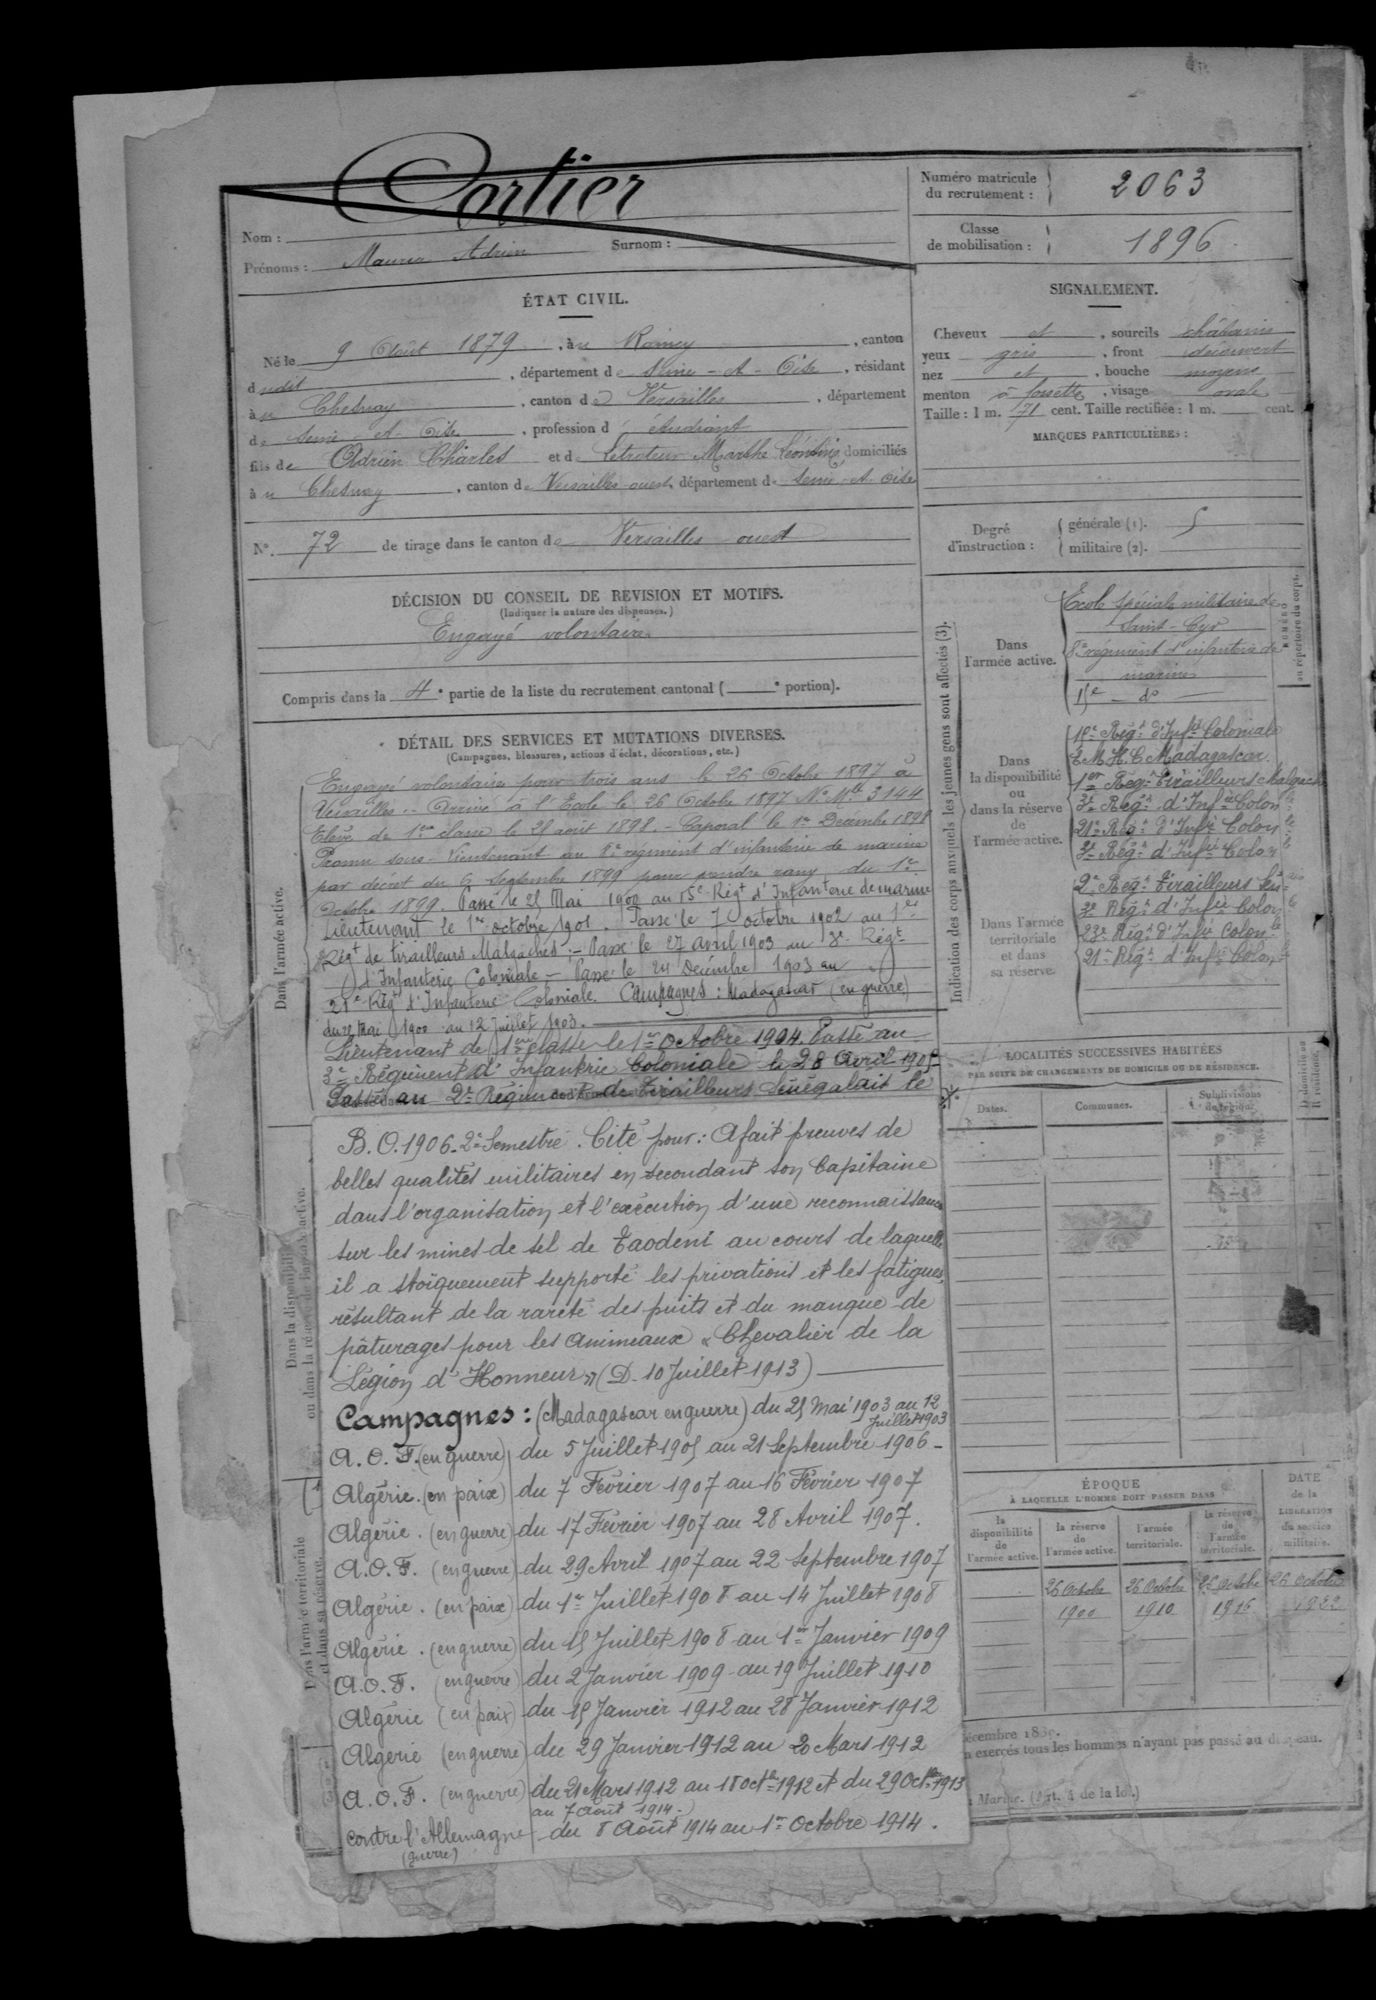 Cortier
Nom :
Surnom :
Prénoms : Maurice Adrien
Numéro matricule
du recrutement :
2063
Classe
de mobilisation :
1896
ÉTAT CIVIL.
Né le 9 Août 1879, à u Raincy, canton
dudit, département de Seine-et-Oise, résidant
à u Chesnay, canton de Versailles, département
de Seine-et-Oise, profession d étudiant
fils de Adrien Charles et de Letroteur Marthe Léontine, domiciliés
à u Chesnay, canton de Versailles-ouest, département de Seine-et-Oise
N°. 72 de tirage dans le canton de Versailles ouest
SIGNALEMENT.
Cheveux et, sourcils châtains
yeux gris, front découvert
nez et, bouche moyens
menton à fossette, visage ovale
Taille : 1 m. 71 cent. Taille rectifiée : 1 m. cent.
MARQUES PARTICULIÈRES :
Degré
d'instruction :
générale (1). 5
militaire (2).
DÉCISION DU CONSEIL DE REVISION ET MOTIFS.
(Indiquer la nature des dispenses.)
Engagé volontaire
Compris dans la 4e partie de la liste du recrutement cantonal ( e portion).
DÉTAIL DES SERVICES ET MUTATIONS DIVERSES.
(Campagnes, blessures, actions d'éclat, décorations, etc.)
Dans l'armée active.
Engagé volontaire pour trois ans le 26 Octobre 1897 à
Versailles - Arrivé à l'Ecole le 26 Octobre 1897 N° Mle 3144
Elève de 1ère classe le 25 août 1898. - Caporal le 1er Décembre 1898
Promu sous-lieutenant au 8e régiment d'infanterie de marine
par décret du 9 Septembre 1899 pour prendre rang du 1er
Octobre 1899. Passé le 25 Mai 1900 au 15e Régt d'Infanterie de marine
Lieutenant le 1er octobre 1901. Passé le 7 octobre 1902 au 1er
Régt de tirailleurs Malgaches. - Passé le 27 avril 1903 au 3e Régt
d'Infanterie Coloniale - Passé le 24 Décembre 1903 au
21e Régt d'Infanterie Coloniale. Campagnes : Madagascar (en guerre)
du 25 Mai 1900 au 12 Juillet 1903.
Lieutenant de 1ère classe le 1er Octobre 1904. Passé au
3e Régiment d'Infanterie Coloniale le 28 Avril 1905
Passé au 2e Régiment de Tirailleurs Sénégalais le
B.O. 1906 - 2e Semestre. Cité pour : A fait preuves de
belles qualités militaires en secondant son Capitaine
dans l'organisation et l'exécution d'une reconnaissance
sur les mines de sel de Taodeni au cours de laquelle
il a stoïquement supporté les privations et les fatigues,
résultant de la rareté des puits et du manque de
pâturages pour les animeaux « Chevalier de la
Légion d'Honneur » (D. 10 Juillet 1913)
Campagnes : (Madagascar en guerre) du 25 Mai 1903 au 12
Juillet 1903
A.O.F. (en guerre) du 5 Juillet 1905 au 21 Septembre 1906 -
Algérie. (en paix) du 7 Février 1907 au 16 Février 1907
Algérie. (en guerre) du 17 Février 1907 au 28 Avril 1907.
A.O.F. (en guerre) du 29 Avril 1907 au 22 Septembre 1907
Algérie. (en paix) du 1er Juillet 1908 au 14 Juillet 1908
Algérie. (en guerre) du 15 Juillet 1908 au 1er Janvier 1909
A.O.F. (en guerre) du 2 Janvier 1909 au 19 Juillet 1910
Algérie (en paix) du 15 Janvier 1912 au 28 Janvier 1912
Algérie (en guerre) du 29 Janvier 1912 au 20 Mars 1912
A.O.F. (en guerre) du 21 Mars 1912 au 18 Octbre 1912 et du 29 Octbre 1913
au 7 Août 1914 -
contre l'Allemagne du 8 Août 1914 au 1er Octobre 1914.
(guerre)
Dans la disponibilité
ou dans la réserve de l'armée active.
Dans l'armée territoriale
et dans sa réserve.
Indication des corps auxquels les jeunes gens sont affectés (3).
NUMÉRO
au répertoire du corps.
Dans
l'armée active.
Ecole spéciale militaire de
Saint-Cyr
8e régiment d'infanterie de
marine
15e - do -
Dans
la disponibilité
ou
dans la réserve
de
l'armée active.
15e Régt d'Infie Coloniale
E.M.H.C. Madagascar
1er Régt Tirailleurs Malgaches
3e Régt d'Infie Colon
21e Régt d'Infie Colon
3e Régt d'Infie Colon
Dans l'armée
territoriale
et dans
sa réserve.
2e Régt Tirailleurs Sén
3e Régt d'Infie Colon
23e Régt d'Infie Colon
21e Régt d'Infie Colon
LOCALITÉS SUCCESSIVES HABITÉES
PAR SUITE DE CHANGEMENTS DE DOMICILE OU DE RÉSIDENCE.
Dates.
Communes.
Subdivisions
de région.
D. domicile ou
R. résidence.
ÉPOQUE
À LAQUELLE L'HOMME DOIT PASSER DANS
DATE
de la
LIBÉRATION
du service
militaire.
la
disponibilité
de
l'armée active.
la réserve
de
l'armée active.
l'armée
territoriale.
la réserve
de
l'armée
territoriale.
26 Octobre 26 Octobre 26 Octobre 26 Octobre
1900 1910 1916 1922
n exercés tous les hommes n'ayant pas passé au drapeau.
Marine. (Art. 4 de la loi.)